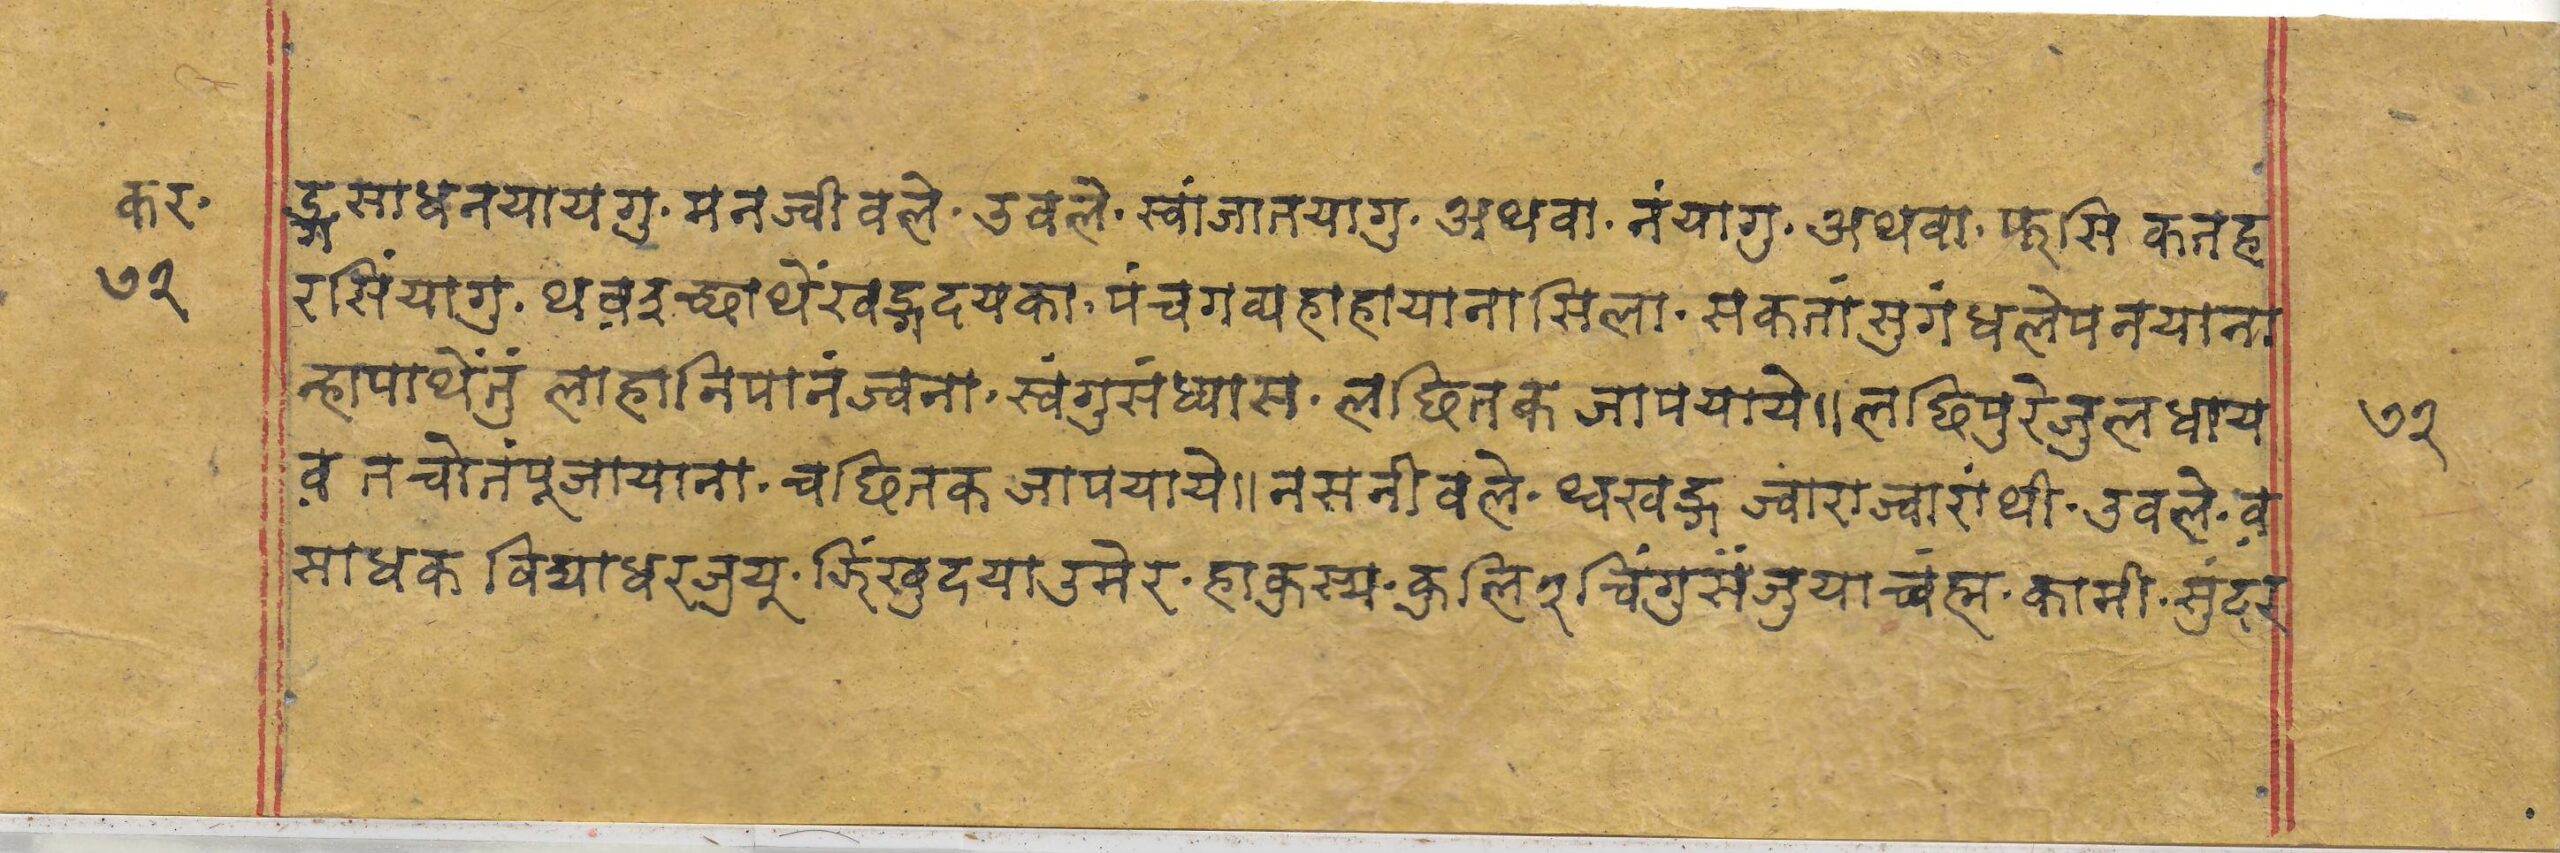 कर. ड्गसाधनयायगु. मनज्वी वले. उवले. स्वांजातयागु. अथवा. नंयागु. अथवा. फूसि कतह
७१ रसिंयागु. थव़इच्छाथेंखड्गदयका. पंचगव्यहाहायानासिला. सकतांसुगंधलेपनयाना
न्हापाथेंतुं लाहानिपानंज्वना. स्वंगुसंध्यास. लछितक जापयाये॥लछिपुरेजुलधाय ७१
व़ तचोतंपूजायाना. चछितक जापयाये॥नसनीवले. थ्वखड्ग ज्वाराज्वारांथी. उवले. व़
साधक विद्याधरजुयू. झिंखुदयाउमेर. हाकुस्म. कुलि२चिंगुसँजुयाच्वंह्म. कामी. सुंदर